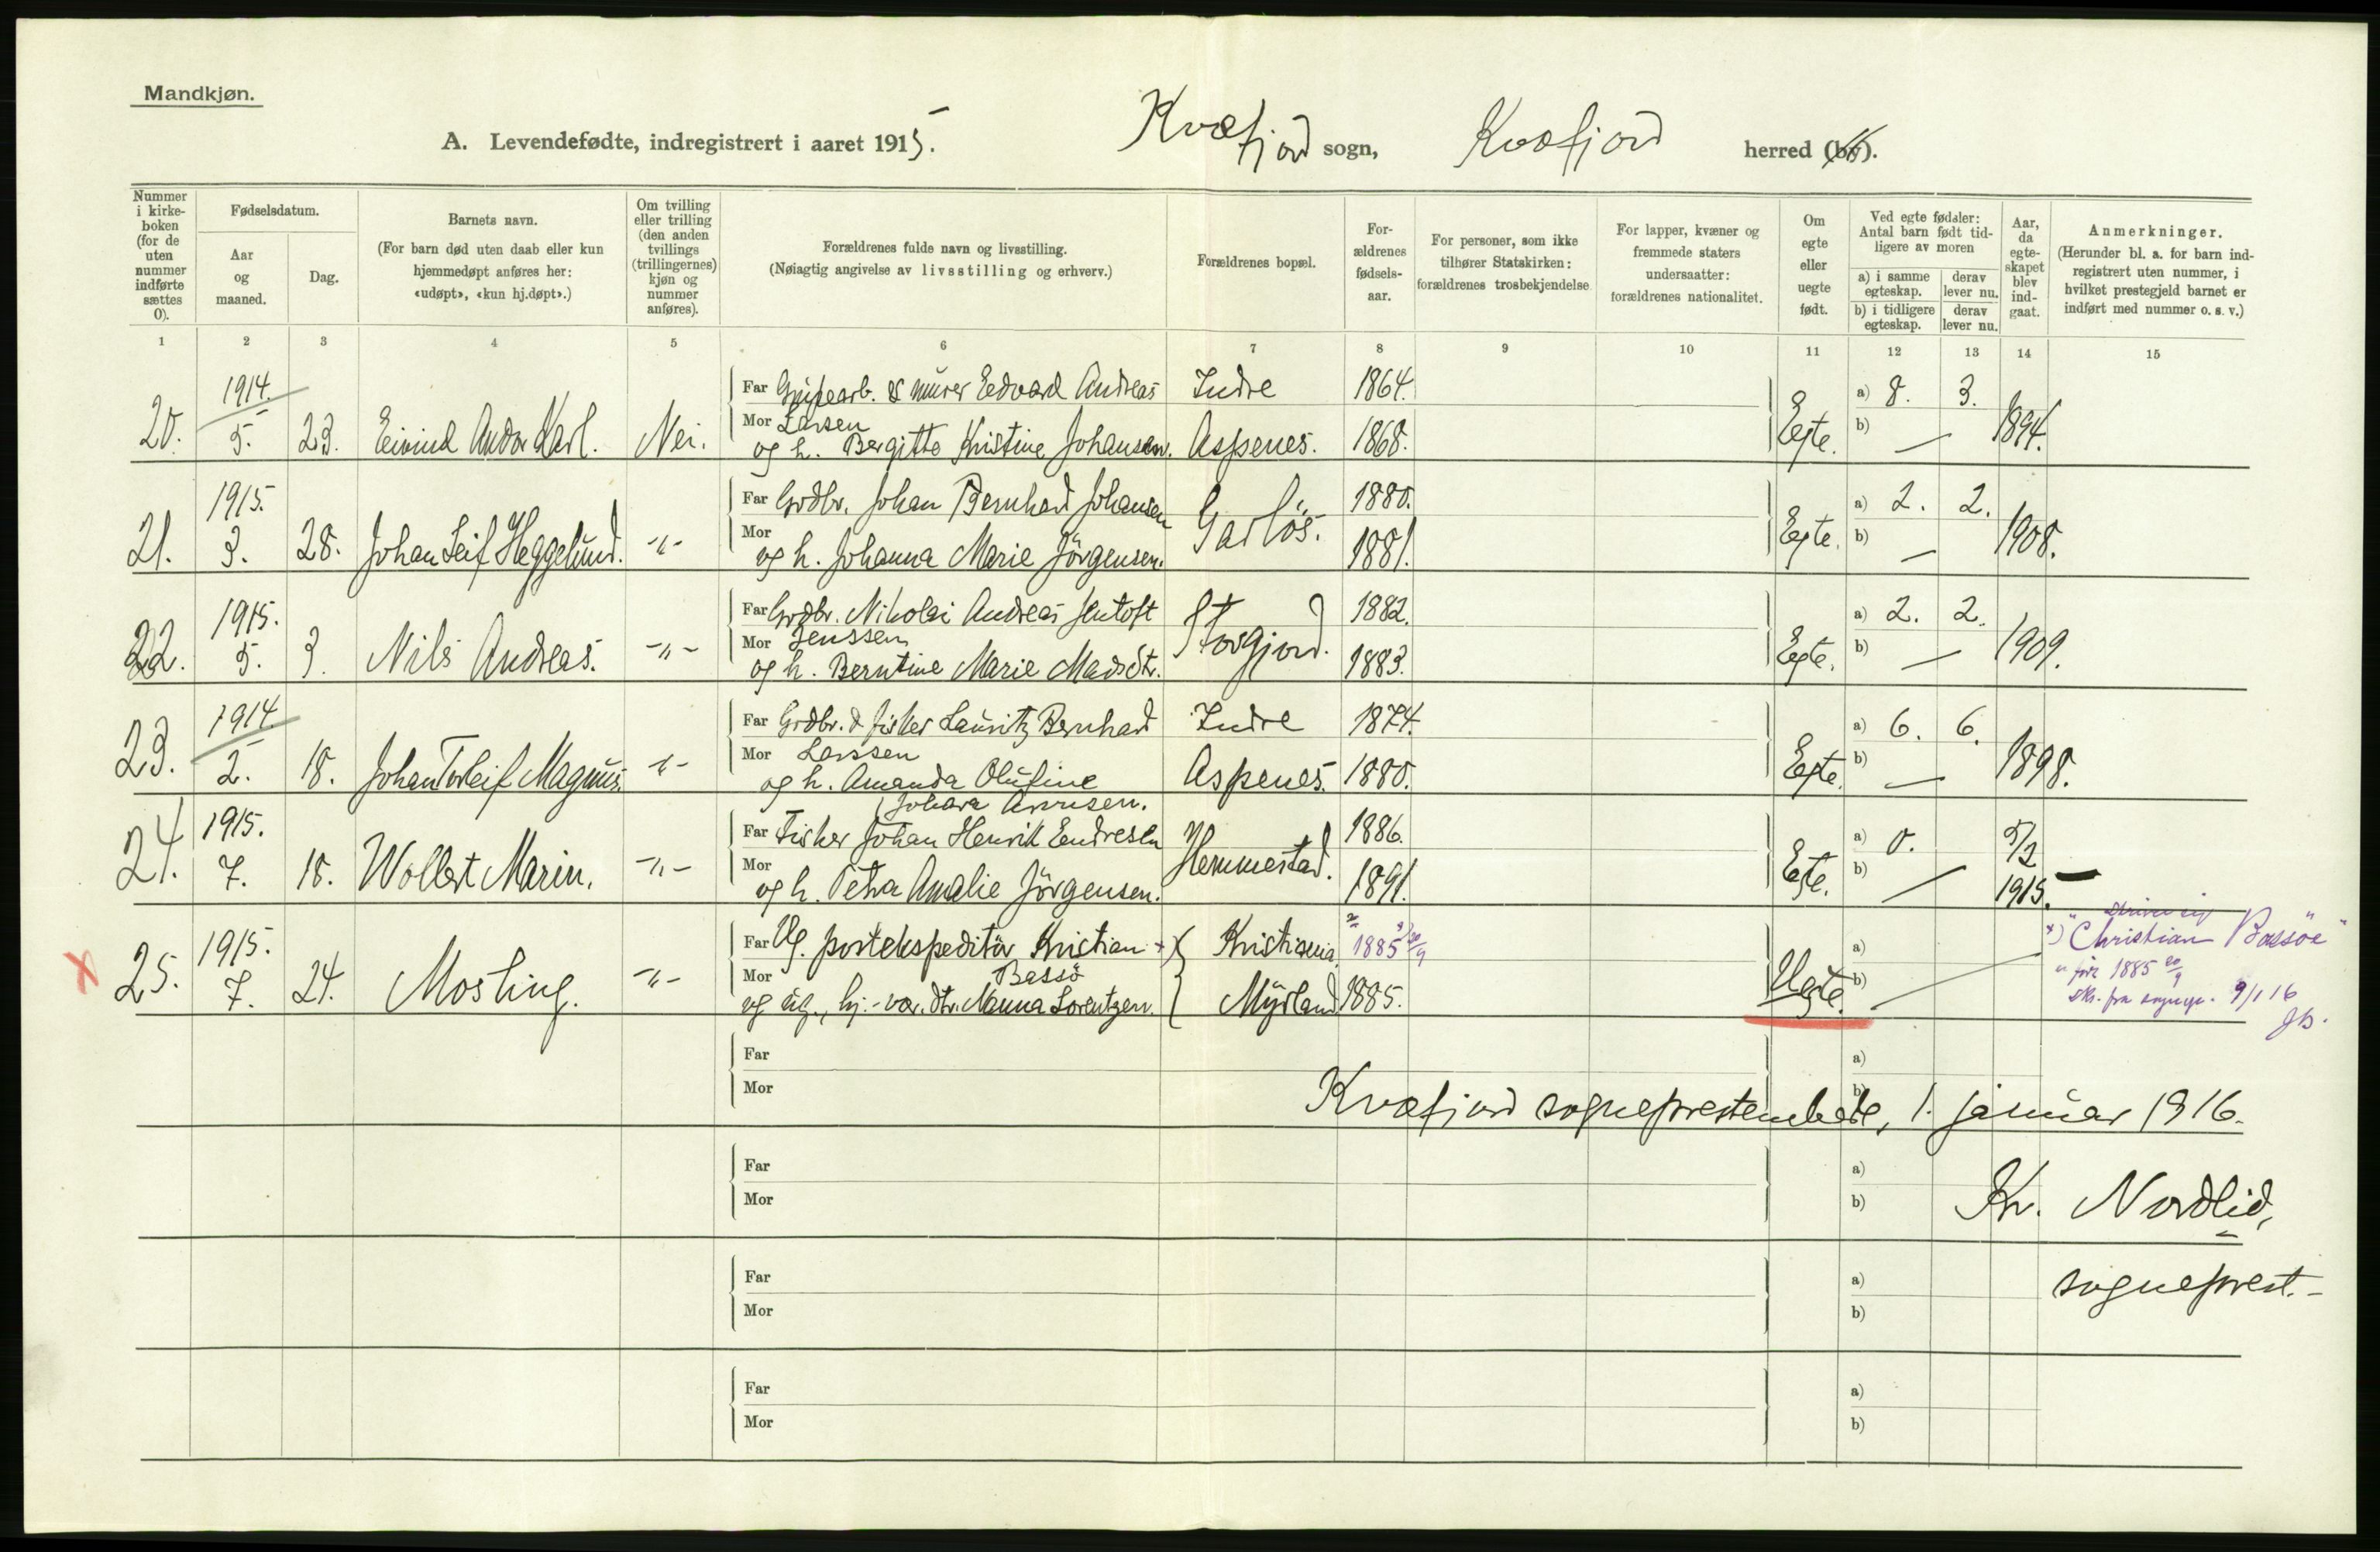 Mandkjøn.
A. Levendefødte, indregistrert i aaret 1915. Kvæfjord sogn, Kvæfjord herred (by).
Nummer i kirke-boken (for de uten nummer indførte sættes 0).
Fødselsdatum.
Aar og maaned.
Dag.
Barnets navn.
(For barn død uten daab eller kun hjemmedøpt anføres her: «udøpt», «kun hj.døpt».)
Om tvilling eller trilling (den anden tvillings (trillingernes) kjøn og nummer anføres).
Forældrenes fulde navn og livsstilling.
(Nøiagtig angivelse av livsstilling og erhverv.)
Forældrenes bopæl.
For-ældrenes fødsels-aar.
For personer, som ikke tilhører Statskirken: forældrenes trosbekjendelse
For lapper, kvæner og fremmede staters undersaatter: forældrenes nationalitet.
Om egte eller uegte født.
Ved egte fødsler: Antal barn født tid-ligere av moren
a) i samme egteskap.
derav lever nu.
b) i tidligere egteskap.
derav lever nu.
Aar, da egte-skapet blev ind-gaat.
Anmerkninger.
(Herunder bl. a. for barn ind-registrert uten nummer, i hvilket prestegjeld barnet er indført med nummer o. s. v.)
1 2 3 4 5 6 7 8 9 10 11 12 13 14 15
1914. Far Grubearb. & murer Edvard Andreas Indre 1864. a) 8. 3.
Mor Larsen
20. 5. 23. Eivind Andor Karl. Nei. og h. Bergitte Kristine Johansen. Aspenes. 1868. Egte. b) — 1894.
1915. Far Grdbr. Johan Bernhard Johansen Garlös. 1880. a) 2. 2.
21. 3. 28. Johan Leif Heggelund. -"- Mor og h. Johanna Marie Jörgensen. 1881. Egte. b) — 1908.
1915. Far Grdbr. Nikolai Andreas Jentoft Storgjord. 1882. a) 2. 2.
Mor Jenssen
22. 5. 3. Nils Andreas. -"- og h. Berntine Marie Madsdtr. 1883. Egte. b) — 1909.
1914 Far Grdbr. & fisker Lauritz Bernhard Indre 1874. a) 6. 6.
Mor Larssen
23. 2. 18. Johan Torleif Magnus. -"- og h. Amanda Olufine Aspenes. 1880. Egte. b) — 1898.
1915. Far Fisker Johan Henrik Endresen Hemmestad. 1886. a) 0. 5/2
24. 7. 18. Wollert Marin. -"- Mor og h. Petra Amalie Jörgensen. 1891. Egte. b) — 1915.
1915. Far Ug. postekspeditör Kristian x) Kristiania. 1885 20/9 a)
Mor Bassö
25. 7. 24. Mosling. -"- og ug., hj.-vær. dtr. Nanna Lorentzen. Myrland 1885. Uegte. b)
skriver sig
x) "Christian Bassöe"
" för 1885 20/9
skr. fra sognepr. 9/1 16
Far a)
Mor b)
Kvæfjord sogneprestembede, 1. januar 1916.
Far a)
Mor b)
Kr. Nordlid,
Far a)
sogneprest.-
Mor b)
Far a)
Mor b)